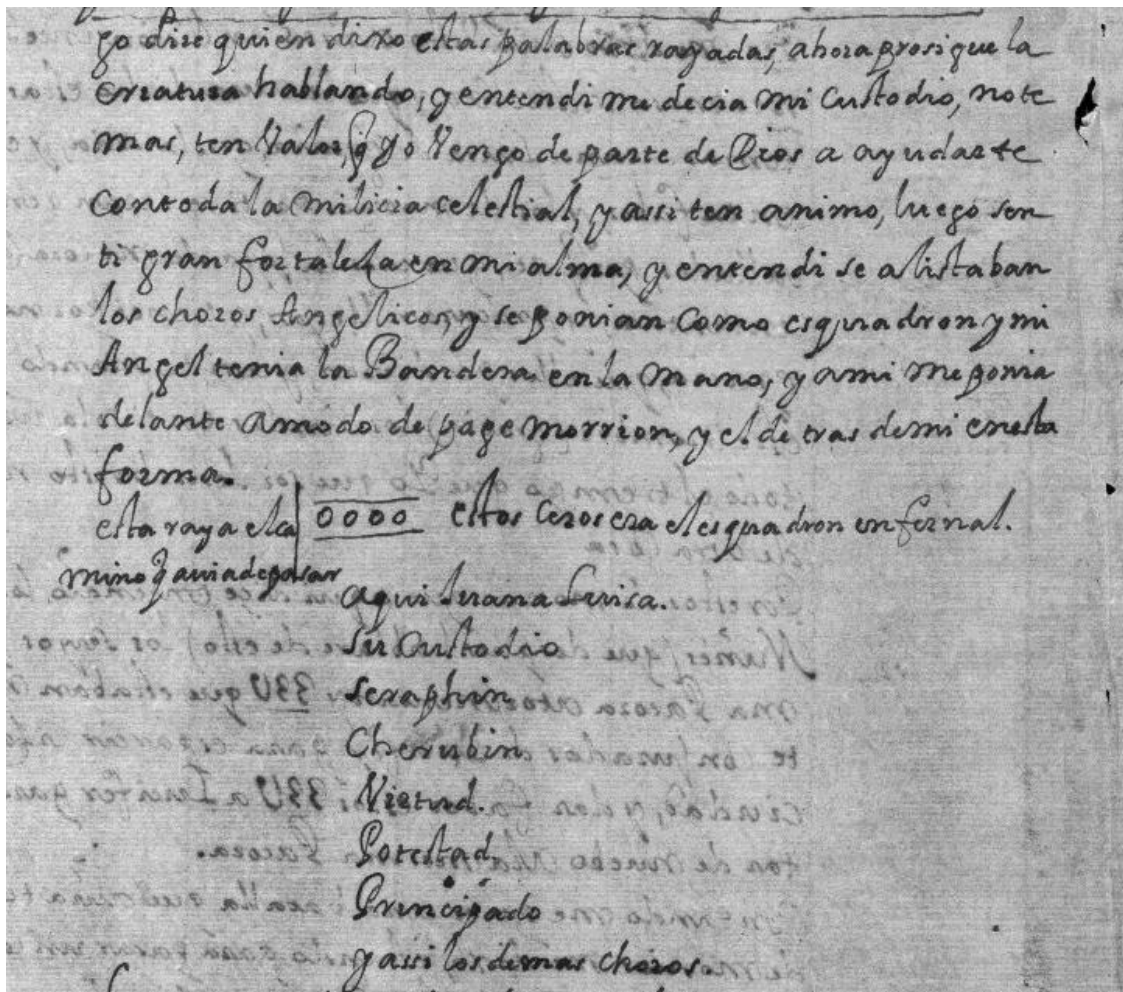 go dize quien dixo estas palabras rayadas, ahora prosigue la
criatura hablando, y entendi me decia mi Custodio, no te
mas, ten Valor, q yo Vengo de parte de Dios a ayudarte
con toda la milicia celestial, y assi ten animo, luego sen
ti gran fortaleza en mi alma, y entendi se alistaban
los choros Angelicos, y se ponian como esquadron y mi
Angel tenia la Bandera en la mano, y a mi me ponia
delante a modo de page morrion, y el de tras de mi en esta
forma.
esta raya el ca 0000 estos ceros era el esquadron enfernal.
mino q avia de pasar
aqui Juana Luisa.
su Custodio
Seraphin
Cherubin
Virtud.
Potestad
Principado
y assi los demas choros